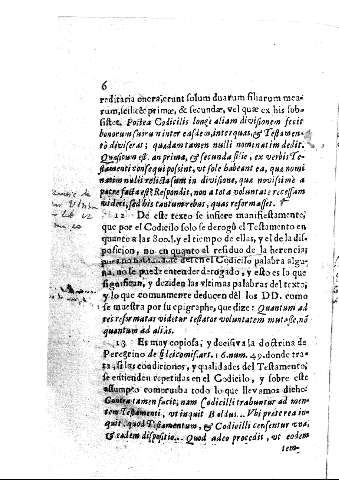 6
reditaria onera erunt solum duarum filiarum mearum, scilicet primæ, & secundæ, vel quæ ex his subsistet.
Postea Codicilis longè aliam divisionem fecit
bonorum suorum inter easdem, inter quas, & Testamento
diviserat; quædam tamen nulli nominatim dedit.
Quæsitum est. an prima, & secunda filie, ex verbis Testamenti
consequi possint, vt sole habeant ea, que nominatim
nulli relicta sunt in divisione, que novissimè à
patre facta est? Respondit, non a tota voluntate recessum
videri, sed his tantum rebus, quas reformasset.
12 De este texto se infiere manifestamente,
que por el Codicilo solo se derogò el Testamento en
quanto à las 800.l. y el tiempo de ellas, y el de la disposicion,
no en quanto al residuo de la herencia;
de el en el Codicilo palabra alguna,
no se puede entender derogado, y esto es lo que
significan, y deciden las vltimas palabras del texto,
y lo que comunmente deducen de los DD. como
se muestra por su epigraphe, que dize: Quantum ad
res reformatas videtur testator voluntatem mutasse, nõ
quantum ad alias.
13 Es muy copiosa, y decisiva la doctrina de
Peregrino de fideicomis. art. 16. num. 49. donde trata,
si las condiciones, y qualidades del Testamento,
se entienden repetidas en el Codicilo, y sobre este
assumpto comprueba todo lo que llevamos dicho:
Contra tamen facit, nam Codicilli trabuntur ad mentem
Testamenti, vt inquit Baldus... Vbi præterea inquit
quod Testamentum, & Codicilli censentur vna,
& eadem dispositio... Quod adeo procedit, vt eodem
tem-